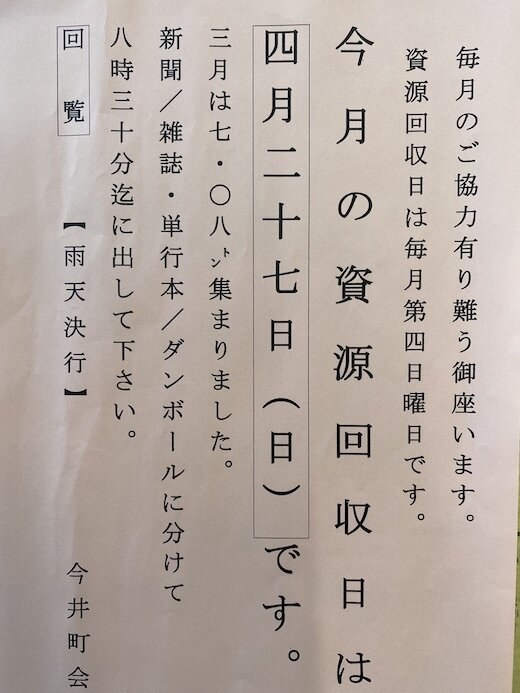 毎月のご協力有り難う御座います。
資源回収日は毎月第四日曜日です。
今月の資源回収日は
四月二十七日（日）です。
三月は七・〇八㌧集まりました。
新聞／雑誌・単行本／ダンボールに分けて
八時三十分迄に出して下さい。
回覧 【雨天決行】 今井町会